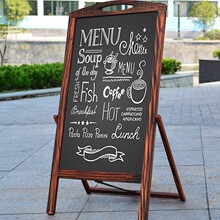 MENU
Soup
of the day
Menu
MENUS
FRESH
Fish
Coffee
HOT
Breakfast
ESPRESSO
CAPPUCCINO
AMERICANO
Pasta Pizza Panini
Lunch